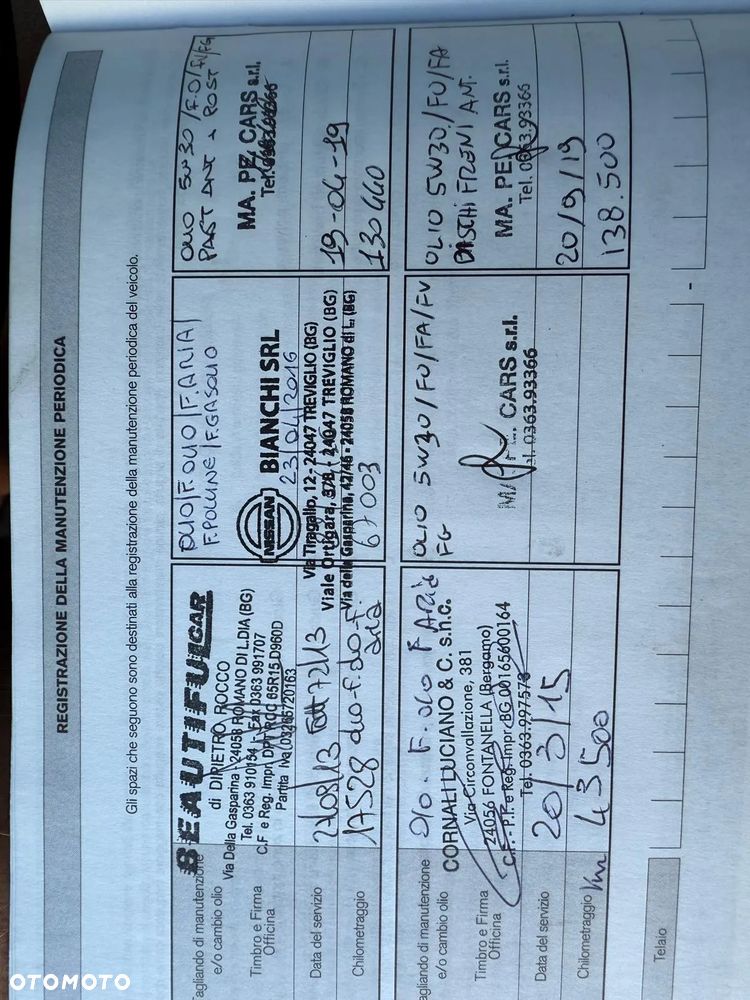 REGISTRAZIONE DELLA MANUTENZIONE PERIODICA
Gli spazi che seguono sono destinati alla registrazione della manutenzione periodica del veicolo.
Tagliando di manutenzione
e/o cambio olio
Timbro e Firma
Officina
Data del servizio
Chilometraggio
BEAUTIFULCAR
di DIPIETRO ROCCO
Via Della Gasparina - 24058 ROMANO DI L.DIA (BG)
Tel. 0363 910154 - Fax 0363 991707
C.F e Reg. Impr. DPT RCC 65R15 D960D
Partita Iva 03265720163
27/08/13
17528
OLIO/F.OLIO/F.ARIA/
F.POLLINE/F.GASOLIO
NISSAN
BIANCHI SRL
23/04/2016
Via Tiragallo, 12 - 24047 TREVIGLIO (BG)
Viale Ortigara, - 24047 TREVIGLIO (BG)
Via della Gasparina, 42/46 - 24058 ROMANO di L. (BG)
67003
OLIO 5W30/FO/FV/FG
PAST ANT + POST
MA. PE. CARS s.r.l.
Tel. 0363.93366
19-04-19
130440
Tagliando di manutenzione
e/o cambio olio
Timbro e Firma
Officina
Data del servizio
Chilometraggio
CORNALI LUCIANO & C. s.n.c.
Via Circonvallazione, 381
24056 FONTANELLA (Bergamo)
C.F. - P.I. e Reg. Impr. BG 00165600164
Tel. 0363.997573
20/3/15
Km 43500
OLIO 5W30/FO/FA/FV
FG
CARS s.r.l.
0363.93366
OLIO 5W30/FO/FA
DISCHI FRENI ANT.
MA. PE. CARS s.r.l.
Tel. 0363.93366
20/9/19
138.500
Telaio
-
OTOMOTO